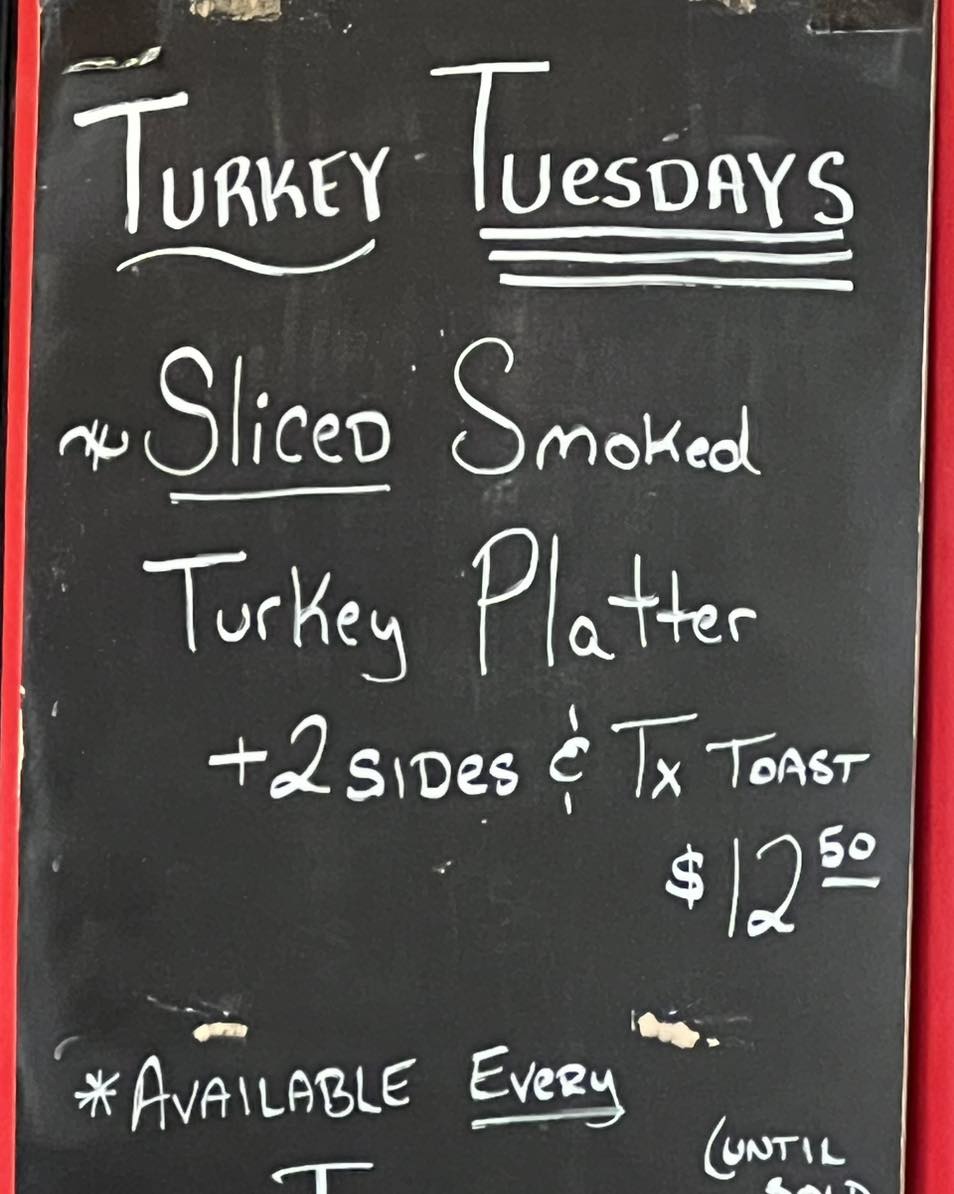 Turkey Tuesdays
*Sliced Smoked
Turkey Platter
+2 sides & Tx Toast
$12.50
*Available Every
(until